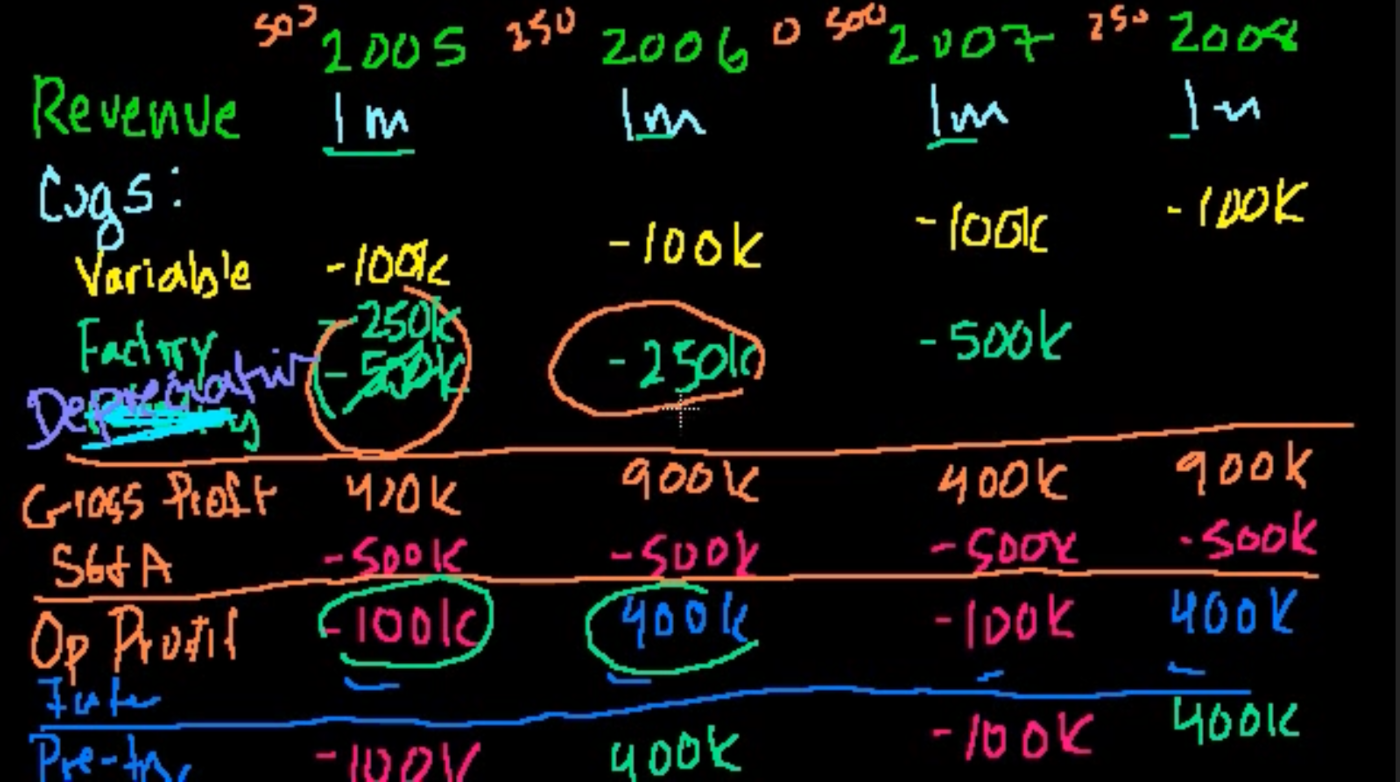 500 2005 250 2006 0 500 2007 250 2008
Revenue 1m 1m 1m 1m
Cogs:
Variable -100k -100k -100k -100k
-250k
Factory -500k -250k -500k
Depreciation
Gross Profit 400k 900k 400k 900k
SG+A -500k -500k -500k -500k
Op Profit -100k 400k -100k 400k
-100k 400k -100k 400k